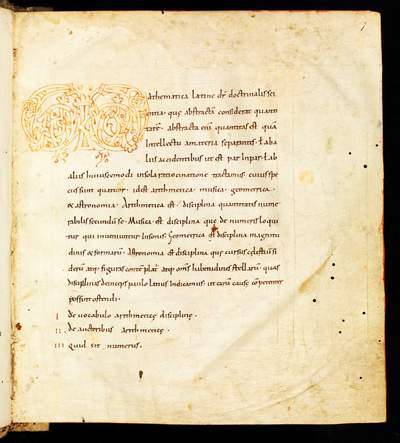 1
Mathematica Latine dr doctrinalis sci
entia · que abstractā considerat quanti
tatē · abstracta enī quantitas est · quā
Intellectu a materia separantes · t aba
liis accidentibus ut est par Inpar · t ab
aliis huiuscemodi in sola ratiocinatione tractamus · cuius spe
cies sunt quatuor · id est arithmetica · musica · geometrica ·
& astronomia · Arithmetica est disciplina quantitatis nume
rabilis secundū se · Musica est disciplina que de numeris loqui
tur qui inveniuntur In sonis · Geometrica est disciplina magnitu
dinis & formarū · Astronomia est disciplina que cursus celestiū si
derū atq; figuras contēplat atq; om̄s habitudines stellarū · quas
disciplinas deinceps paulo latius Indicamus · ut earū cause competenter
possint ostendi ·
I de vocabulo arithmetice discipline ·
II de auctoribus arithmetice ·
III quid sit numerus ·